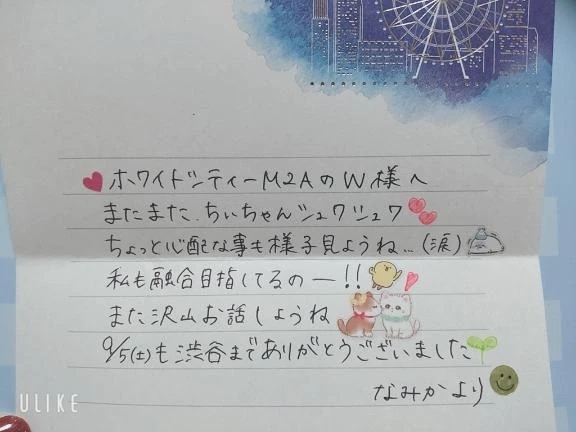 ホワイトシティーM2AのW様へ
またまた、ちぃちゃんシュワシュワ
ちょっと心配な事も様子見ようね…(涙)
私も融合目指してるの―!!
また沢山お話しようね
9/5(土)も渋谷までありがとうございました
なみかより
ULIKE